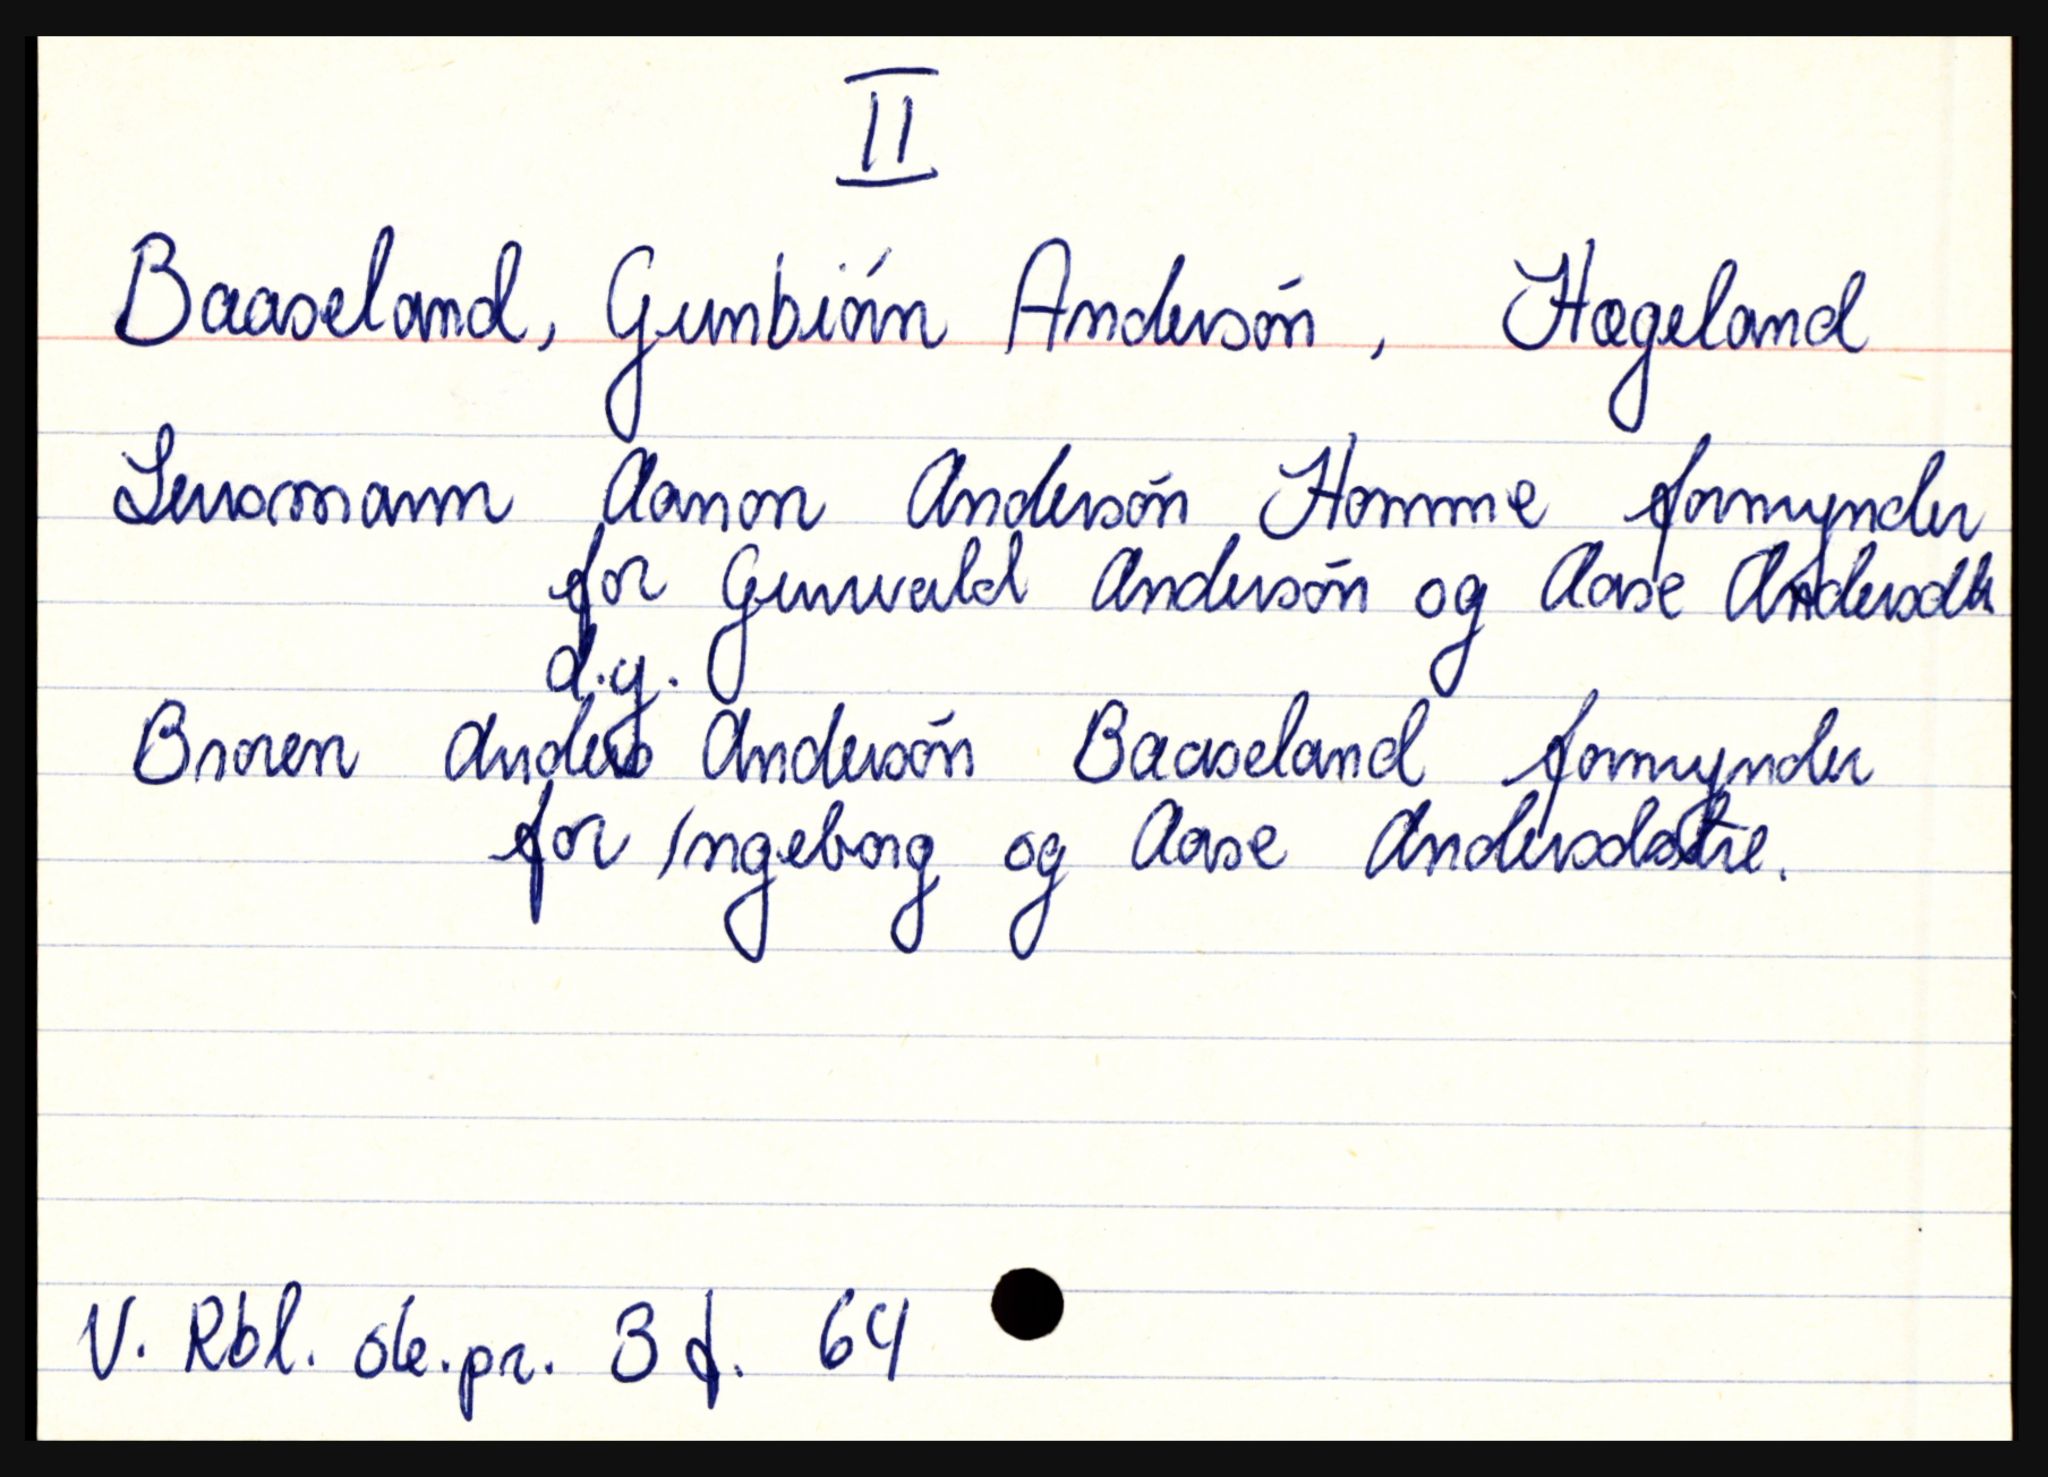 II
Baaseland, Gunbiórn Andersón, Hægeland
Lensmann Aanon Andersón Homme formynder
for Gunvald Andersón og Aase Andersdtr
d.y.
Broren Anders Andersón Baaseland formynder
for Ingeborg og Aase Andersdøtre.
V. Rbl. sk.pr. 3 f. 64